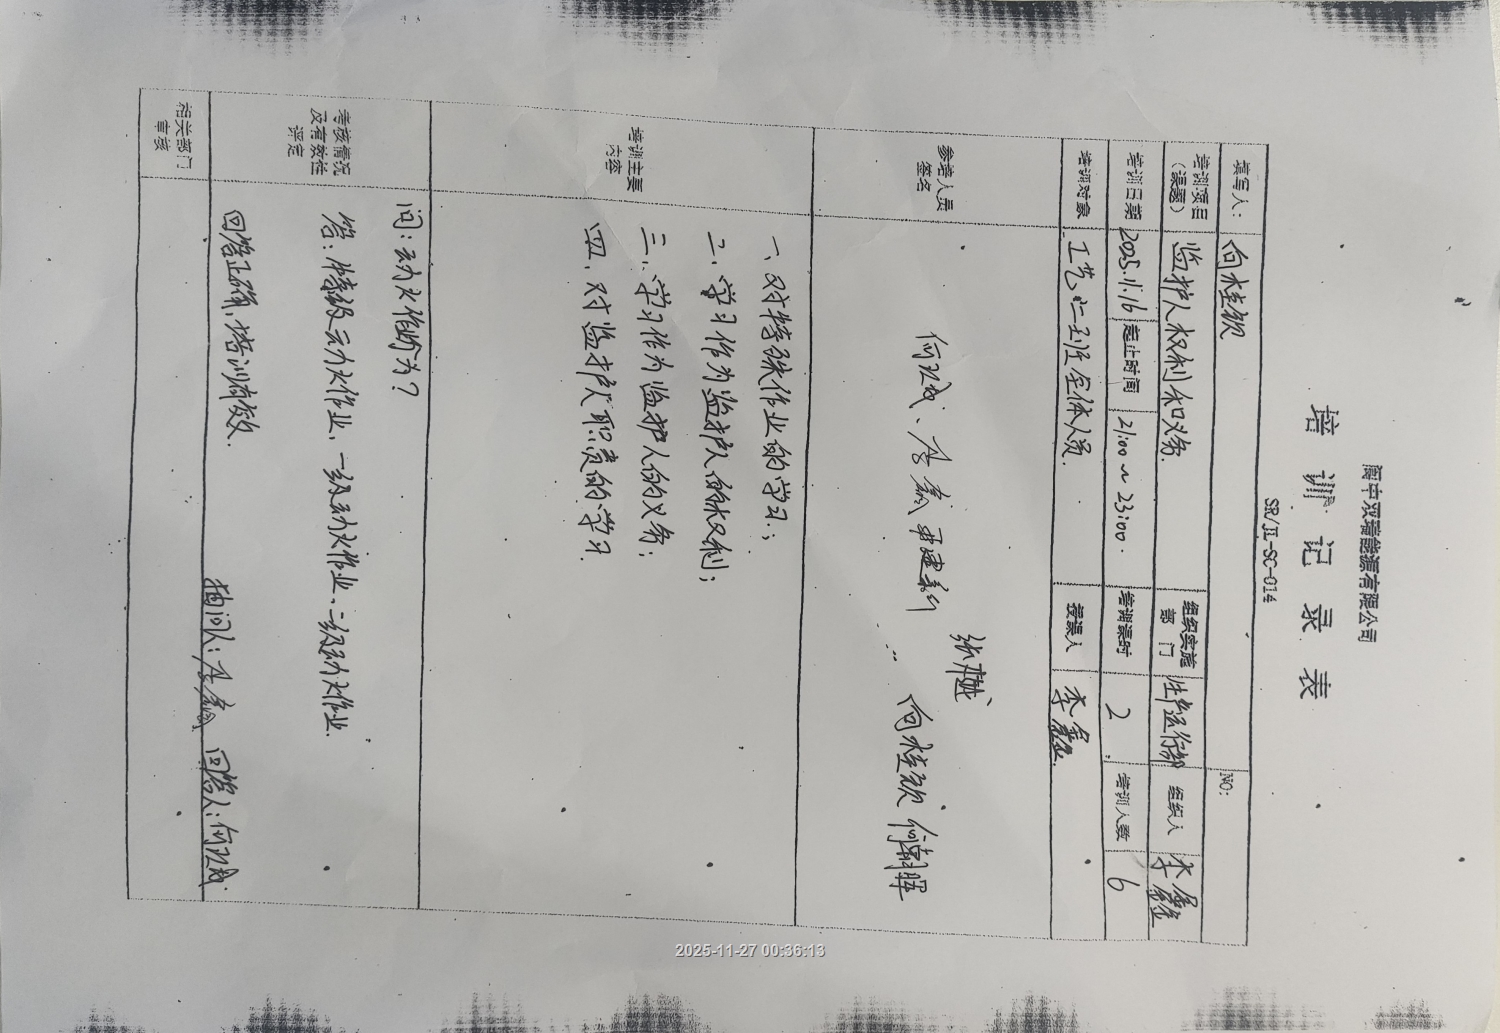 阆中双瑞能源有限公司
培训记录表
SR/JL-SC-014
填写人： 向桂钦 NO:
培训项目（课题） 监护人权利和义务. 组织实施部门 生产运行部 组织人 李
培训日期 2025.11.16 起止时间 21:00～23:00. 培训课时 2 培训人数 6
培训对象 工艺仁工段全体人员. 授课人 李
参培人员签名
何 、李鑫
向桂钦 何朝晖
培训主要内容
一、对特殊作业的学习；
二、学习作为监护人的权利；
三、学习作为监护人的义务；
四、对监护人职责的学习.
考核情况及有效性评定
问：动火作业分为？
答：特级动火作业、一级动火作业、二级动火作业.
回答正确，培训有效.
抽问人：李鑫 回答人：何
相关部门审核
2025-11-27 00:36:13